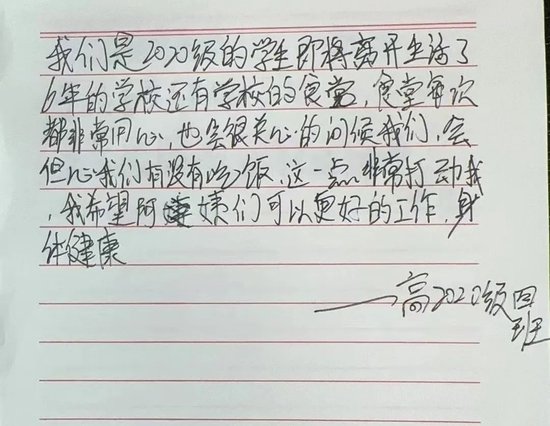 我们是2020级的学生即将离开生活了
6年的学校还有学校的食堂，食堂每次
都非常用心，也会很关心的问候我们，会
担心我们有没有吃饭，这一点非常打动我
，我希望阿姨们可以更好的工作，身
体健康
——高2020级四
班